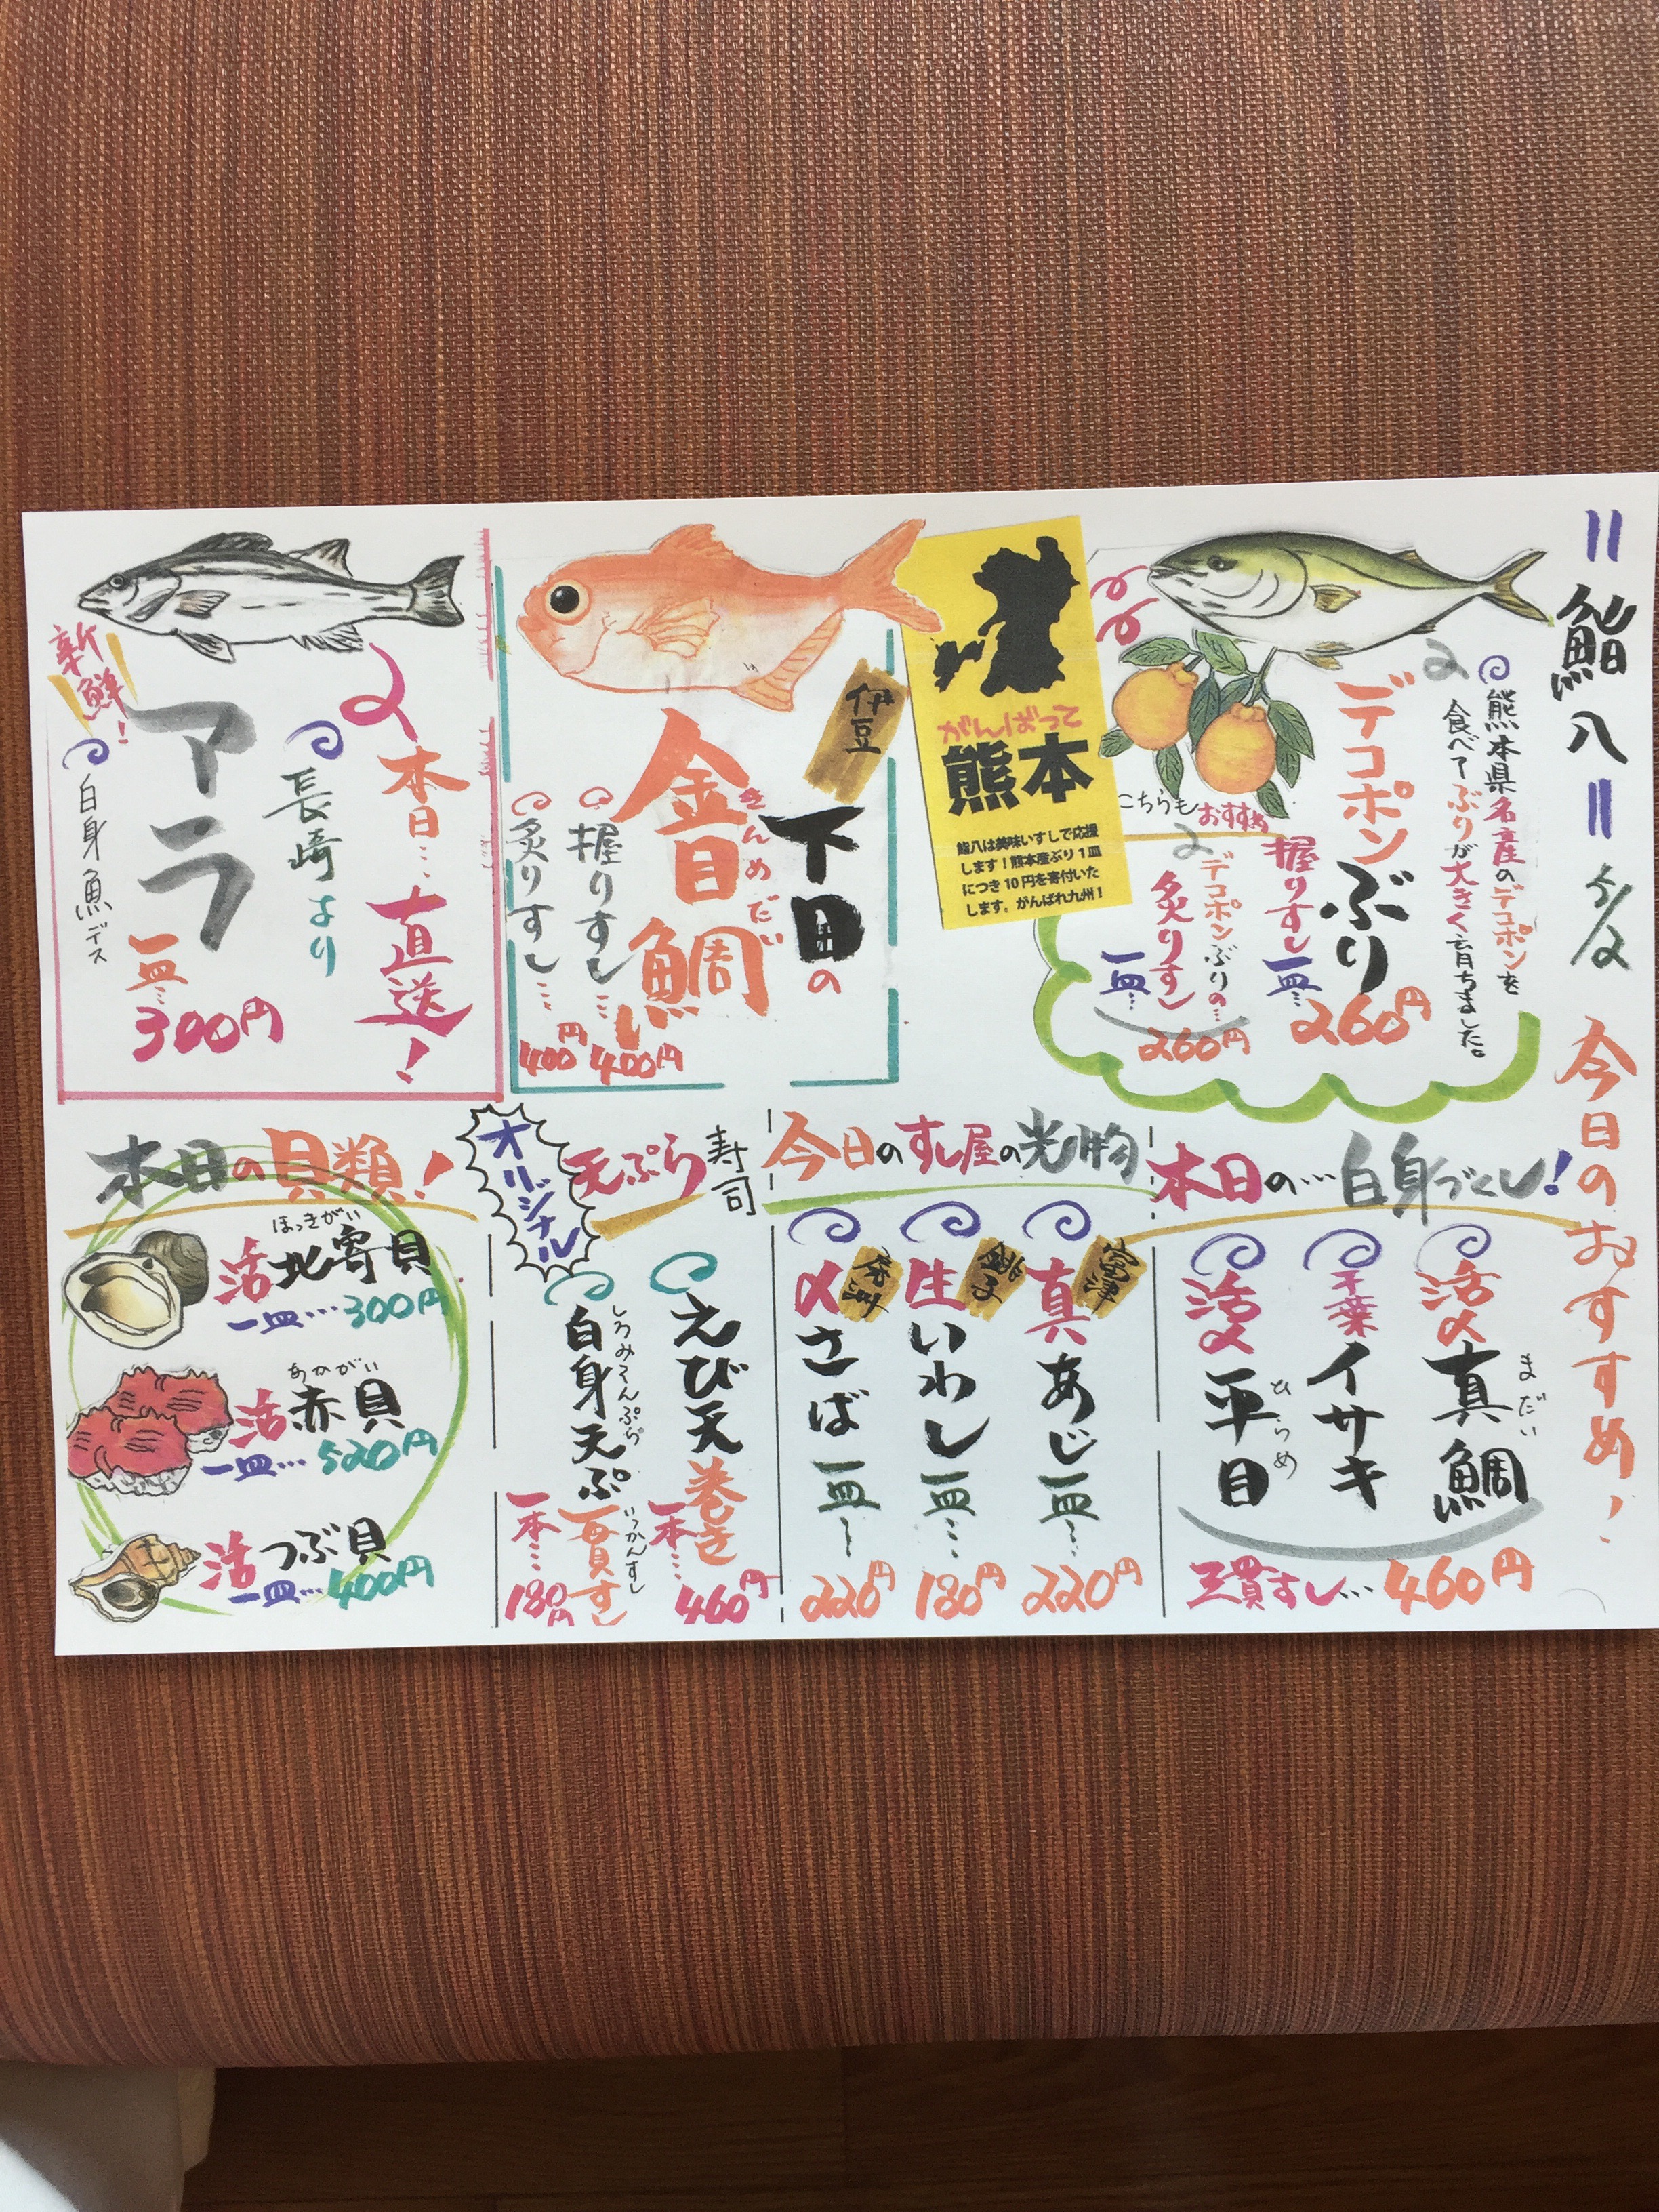 鮨八 5/2 今日のおすすめ!
熊本県名産のデコポンを
食べてぶりが大きく育ちました。
デコポンぶり
握りすし一皿… 260円
こちらもおすすめ
デコポンぶりの…
炙りすし
一皿… 260円
がんばって
熊本
鮨八は美味いすしで応援
します!熊本産ぶり1皿
につき10円を寄付いた
します。がんばれ九州!
伊豆
下田の
きんめだい
金目鯛
握りすし… 400円
炙りすし… 400円
本日…直送!
長崎より
アラ
一皿… 300円
新鮮!
白身魚デス
本日の…白身づくし!
活〆真鯛
まだい
千葉イサキ
活〆平目
ひらめ
三貫すし… 460円
今日のすし屋の光り物
富津
真あじ一皿… 220円
銚子
生いわし一皿… 180円
〆さば一皿… 220円
オリジナル
天ぷら寿司
えび天巻き
一本… 460円
白身天ぷ
一貫すし
いっかんすし
一本… 180円
本日の貝類!
ほっきがい
活北寄貝
一皿… 300円
あかがい
活赤貝
一皿… 520円
活つぶ貝
一皿… 400円